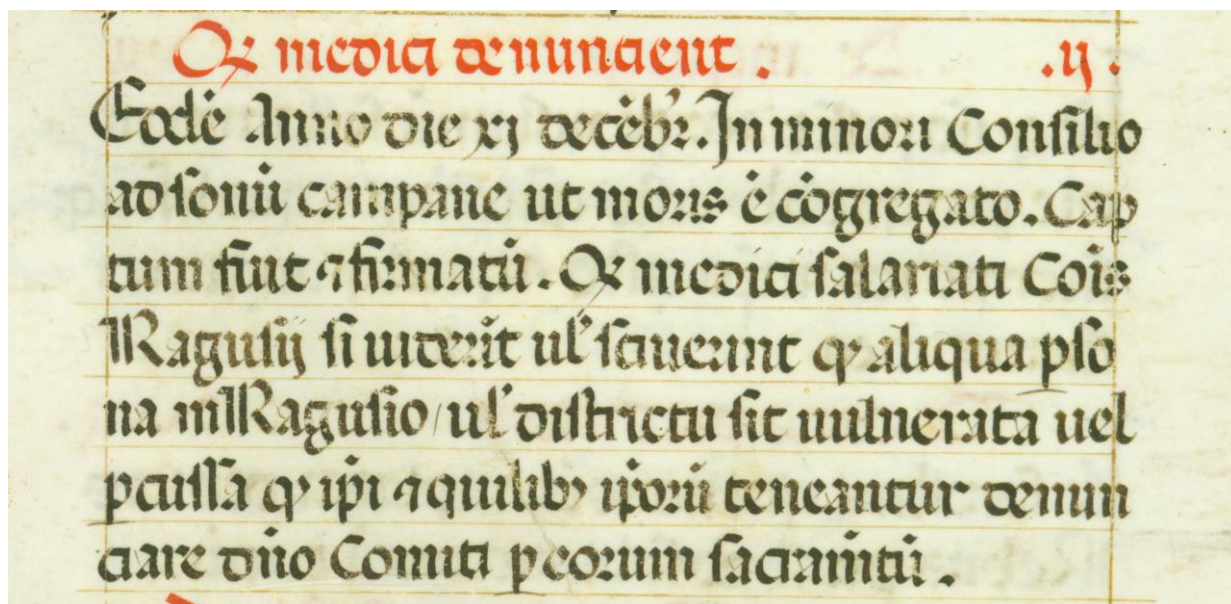 Qꝛ medici denuncient . .ij.
Eodē Anno die xj decēbꝛ. In minori Consilio
ad sonū campane ut moris ē cōgregato. Cap
tum fuit ⁊ firmatū. Qꝛ medici salariati Cōis
Ragusij si uiderīt ul' sciuerint ꝙ aliqua ꝑso
na in Ragusio / ul' districtu sit uulnerata uel
ꝑcussa ꝙ ip̄i ⁊ quilibꝫ ip̄orū teneantur denun
ciare dn̄o Comiti ꝑ eorum sacramītū.